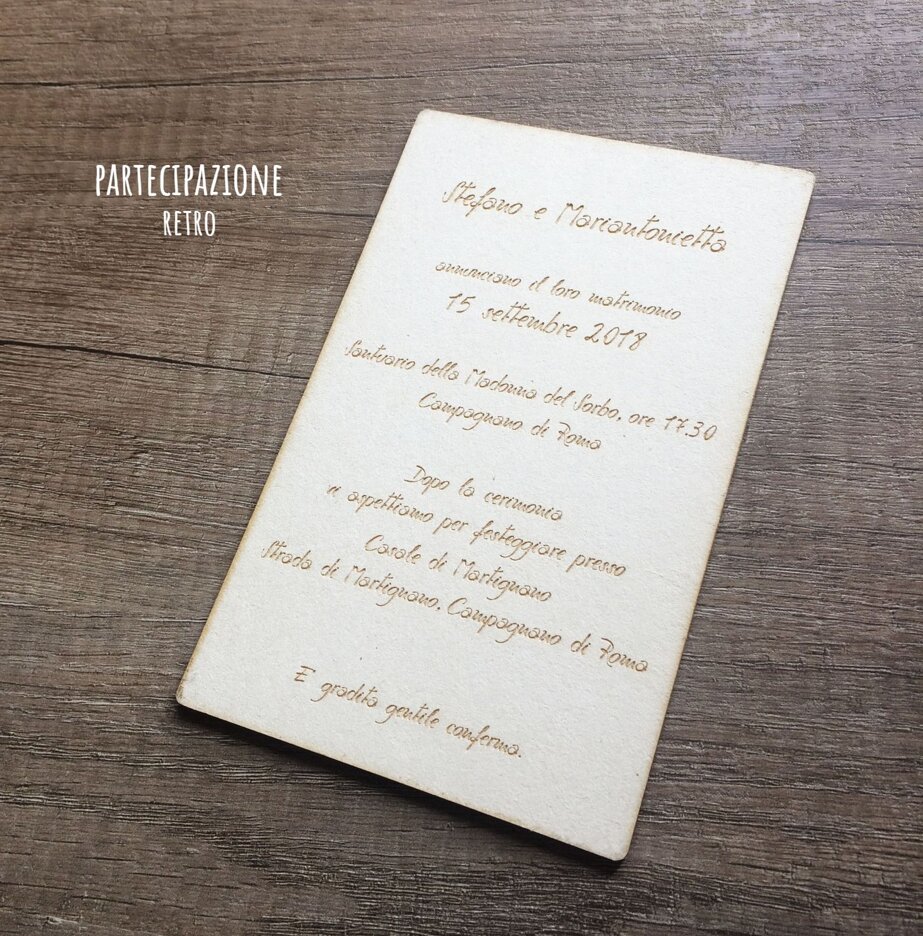 PARTECIPAZIONE
RETRO
Stefano e Mariantonietta
annunciano il loro matrimonio
15 settembre 2018
Santuario della Madonna del Sorbo, ore 17.30
Campagnano di Roma
Dopo la cerimonia
vi aspettiamo per festeggiare presso
Casale di Martignano
Strada di Martignano, Campagnano di Roma
E gradita gentile conferma.